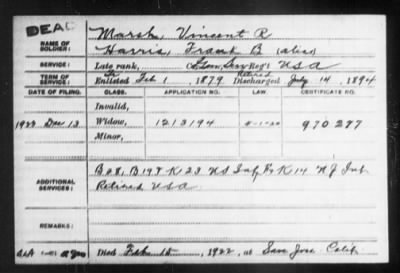 DEAD
Marsh, Vincent R
NAME OF SOLDIER: Harris, Frank B (alias)
SERVICE: Late rank, Com. Serg Reg't USA
TERM OF SERVICE: Enlisted Feb 1, 1879 Retired Discharged July 14, 1894
DATE OF FILING. CLASS. APPLICATION NO. LAW. CERTIFICATE NO.
Invalid,
1922 Dec 13 Widow, 1213194 5-1-20 970277
Minor,
ADDITIONAL SERVICES: B 28, B 198 K 23 US Inf. K 14 NJ Inf
Retired USA
REMARKS:
Died Feb 15, 1922, at San Jose Calif